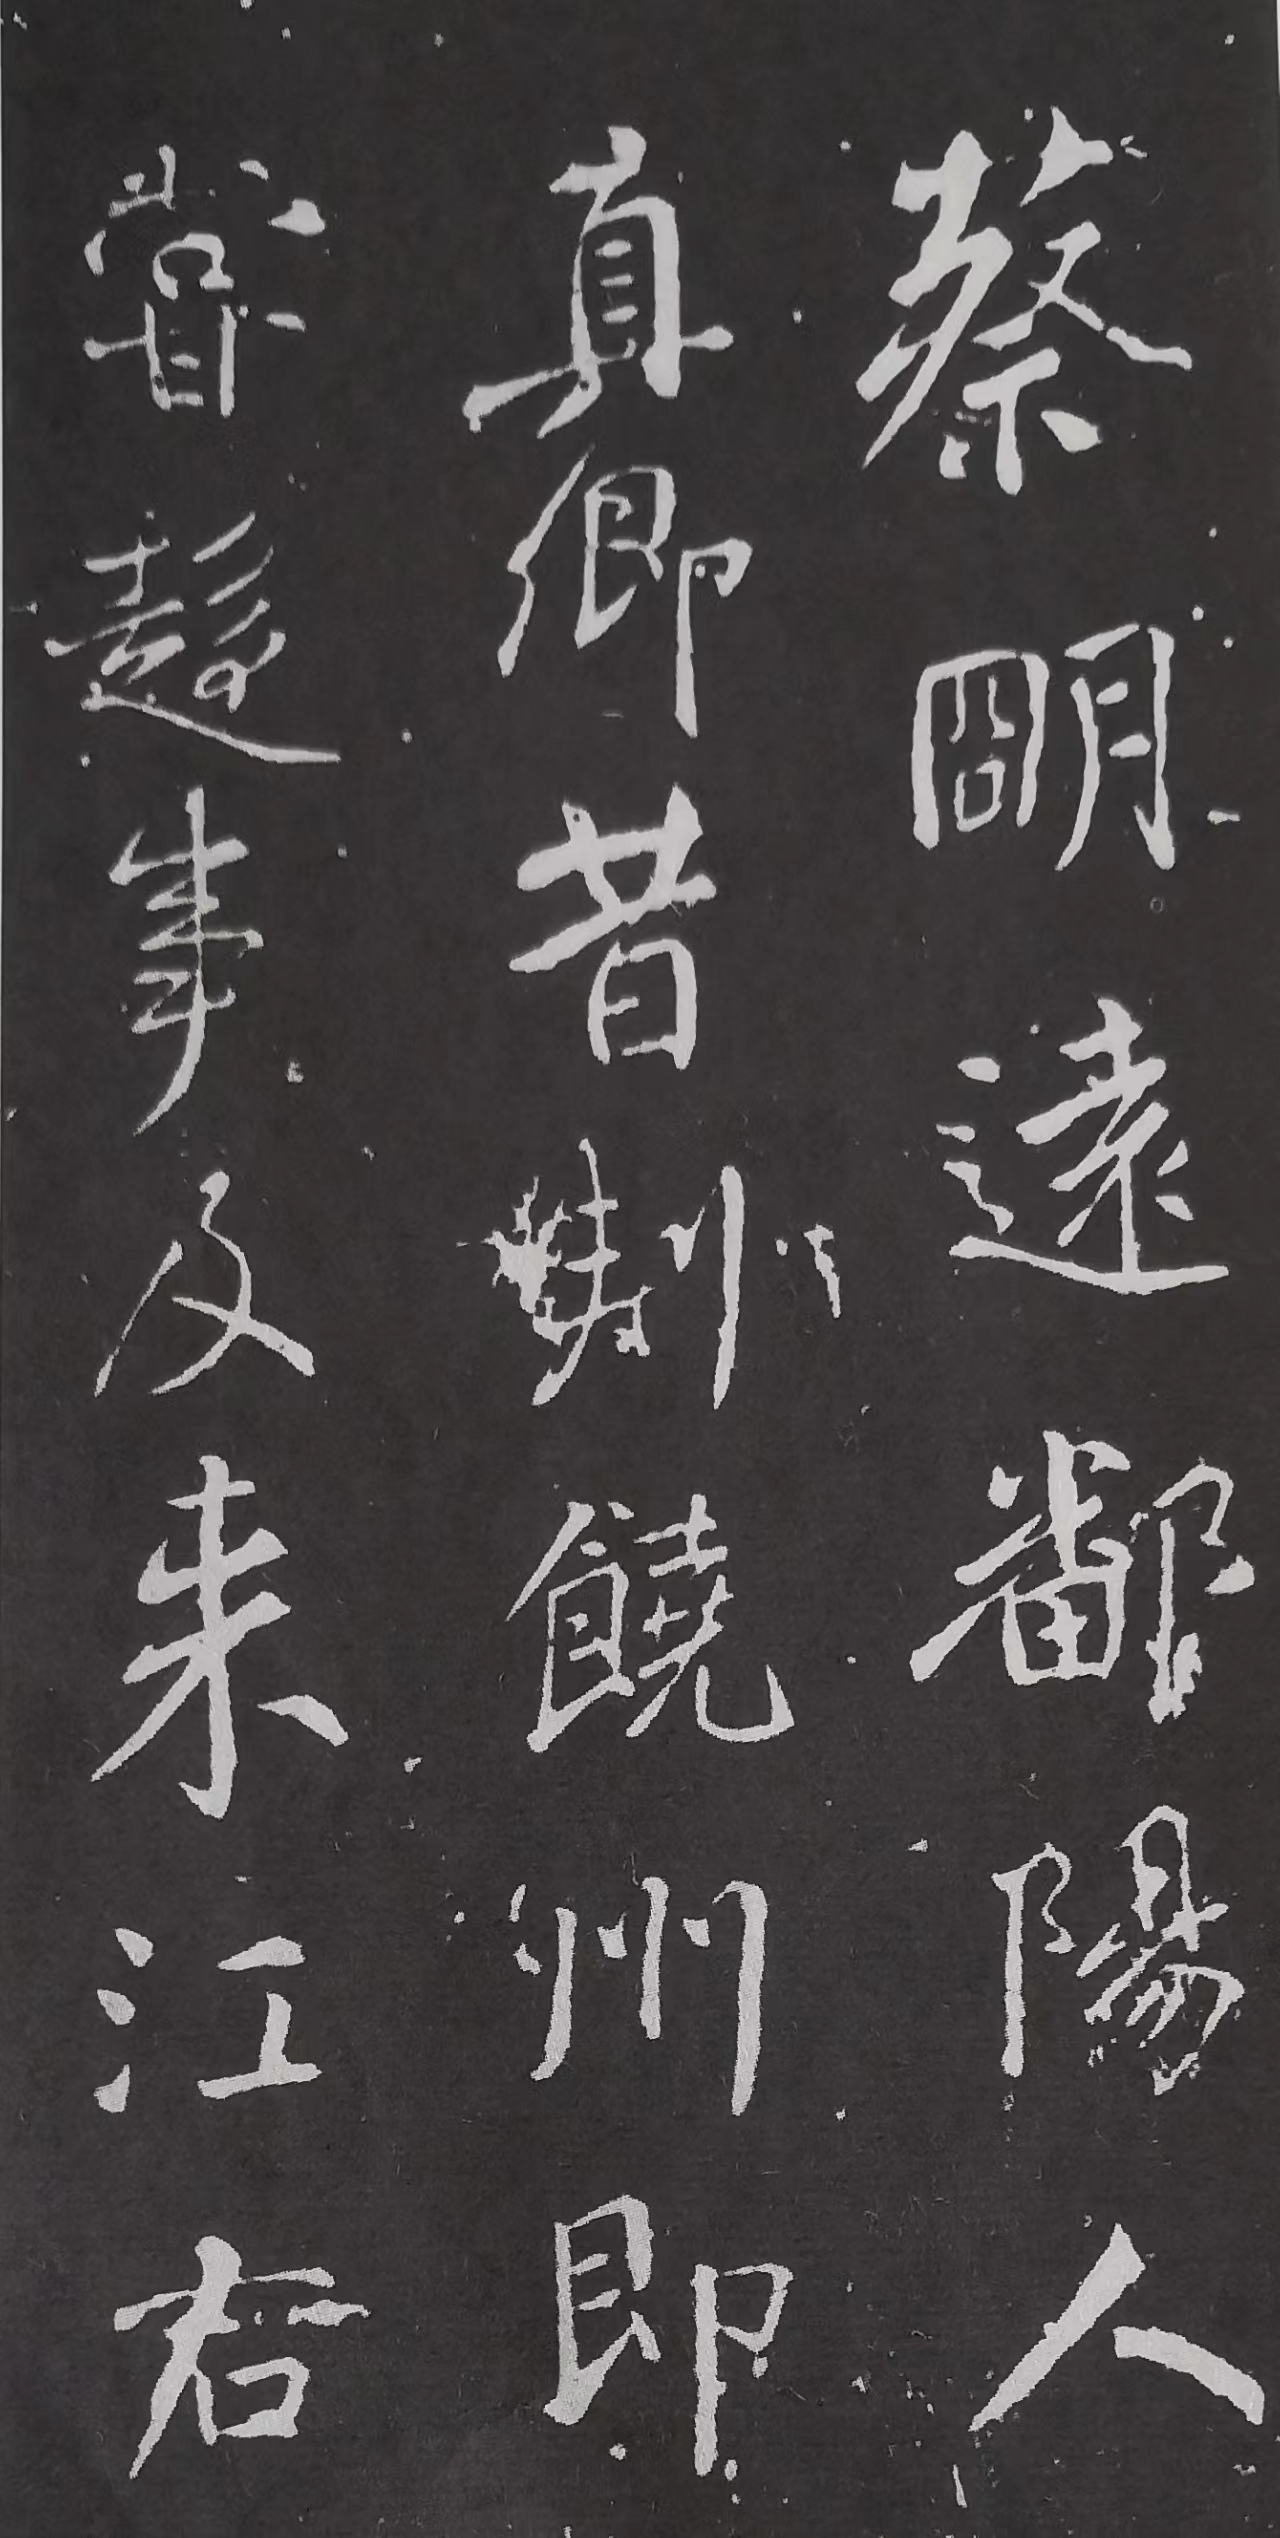 蔡明遠鄱陽人
真卿昔刺饒州即
嘗趍事及来江右